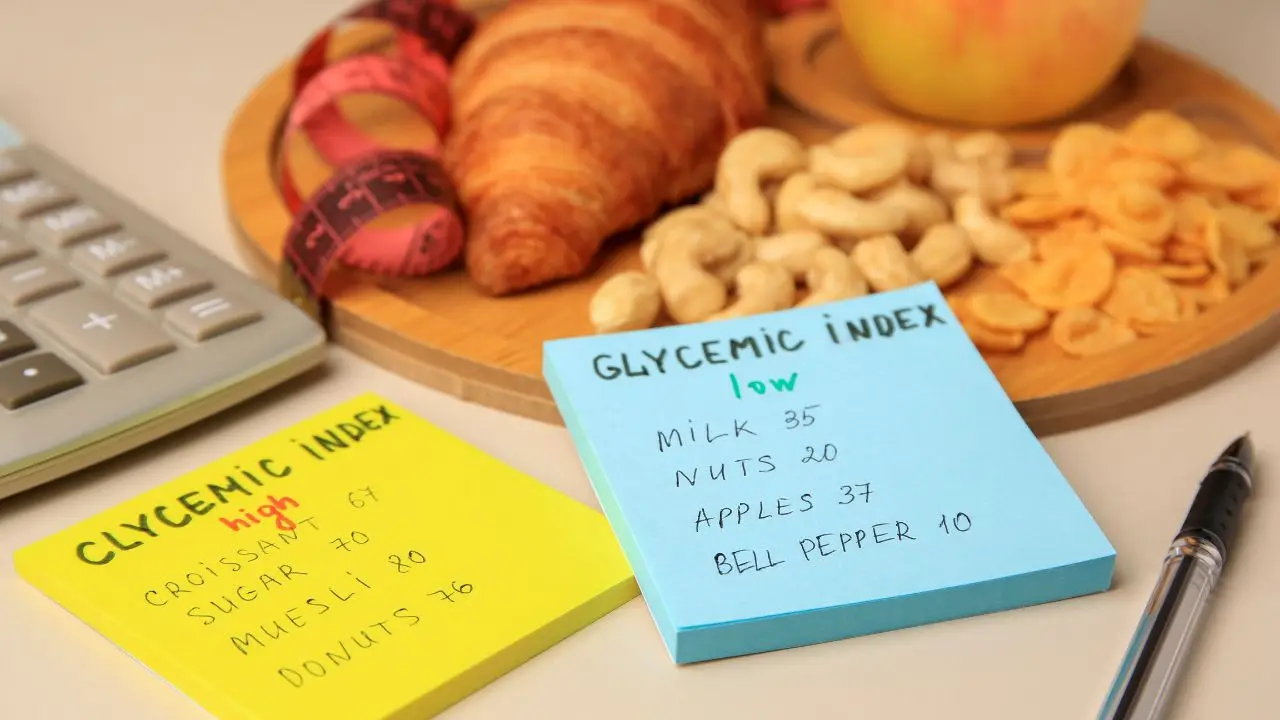 CLYCEMIC INDEX
high
CROISSANT 67
SUGAR 70
MUESLI 80
DONUTS 76
GLYCEMIC INDEX
low
MILK 35
NUTS 20
APPLES 37
BELL PEPPER 10
M+
+
=
-